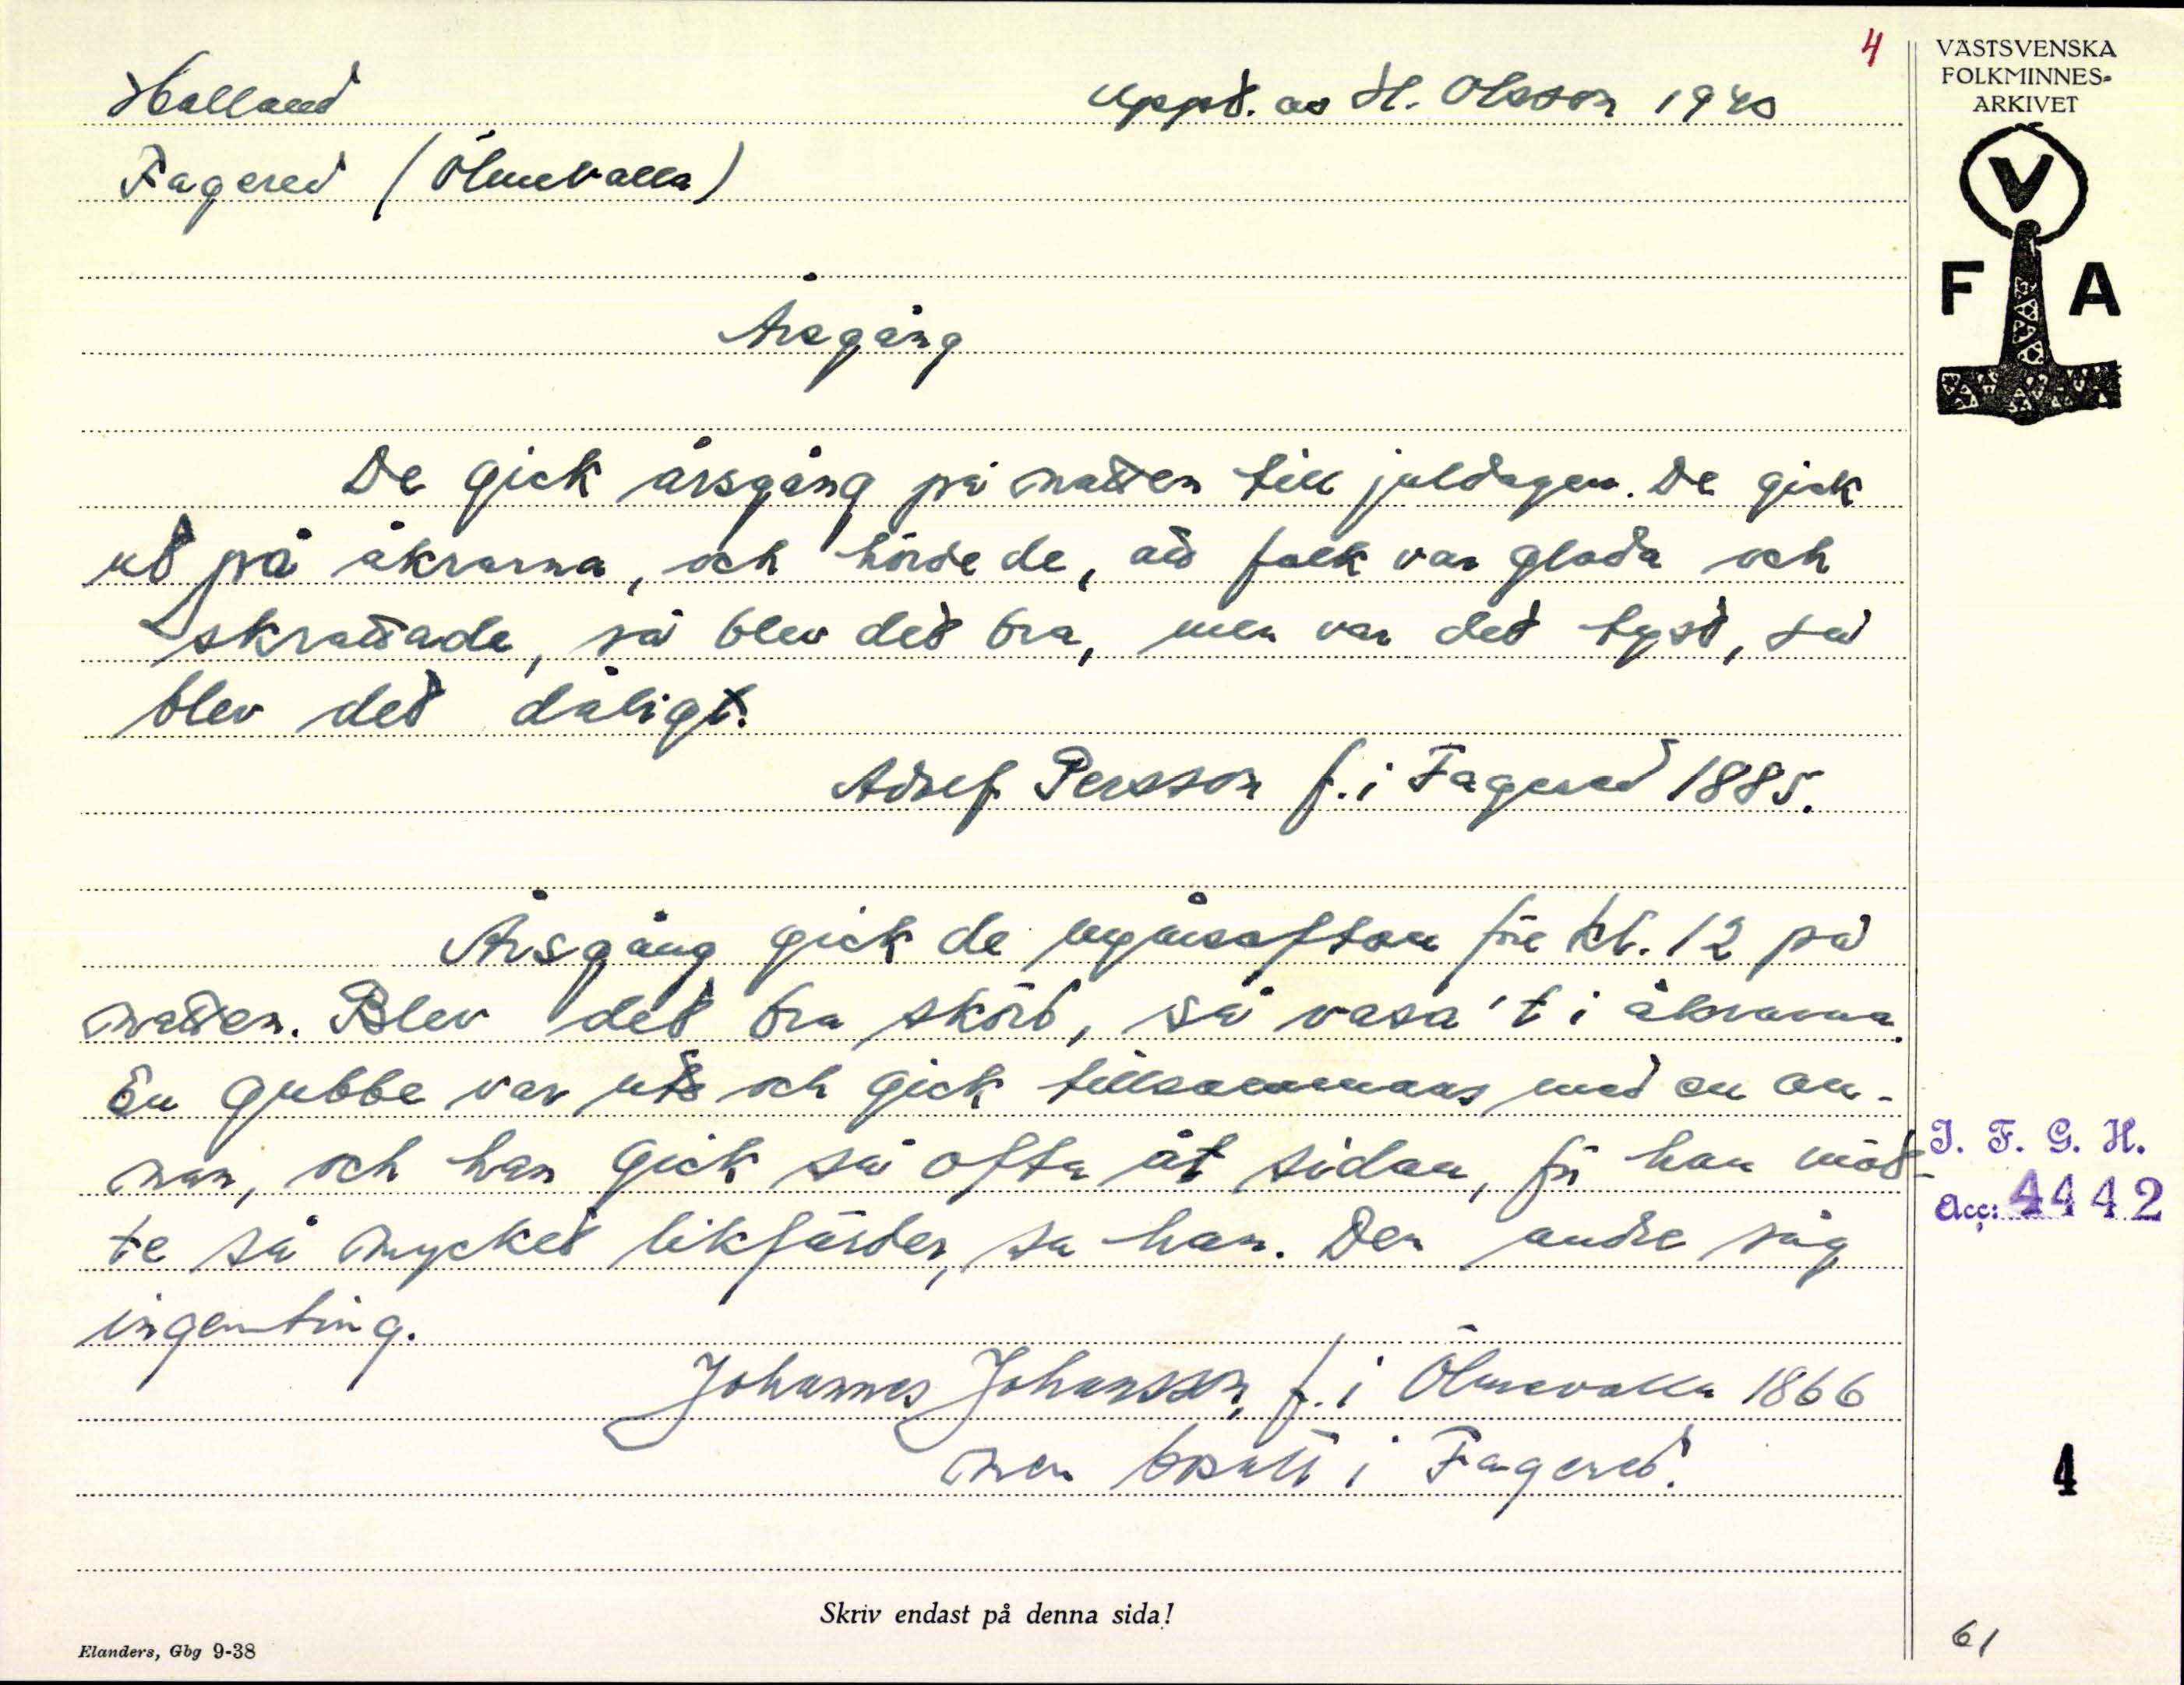 4
VÄSTSVENSKA
FOLKMINNES-
ARKIVET
V
F A
Halland
Uppt. av H. Olsson 1940
Fagered (Ölmevalla)
Årsgång
De gick årsgång på natten till juldagen. De gick
ut på åkrarna, och hörde de, att folk var glada och
skrattade, så blev det bra, men var det tyst, så
blev det dåligt.
Adolf Persson f. i Fagered 1885.
Årsgång gick de nyårsafton före kl. 12 på
natten. Blev det bra skörd, så vasa 't i åkrarna.
En gubbe var ute och gick tillsammans med en an-
nan, och han gick så ofta åt sidan, för han möt-
te så mycket likfärder, sa han. Den andre såg
ingenting.
Johannes Johansson, f. i Ölmevalla 1866
men bosatt i Fagered.
I. F. G. H.
Acc: 4442
4
Skriv endast på denna sida!
Elanders, Gbg 9-38
61